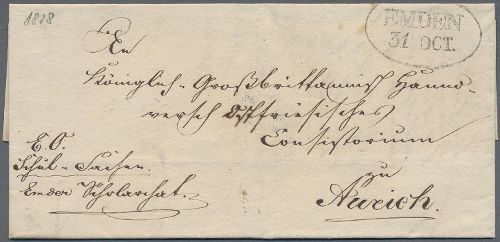 1828
EMDEN
31 OCT.
An
Königlich-Großbrittannisch Hanno-
versch Ostfriesisches
Consistorium
zu
Aurich.
E. O.
Schul-Sachen.
Emder Scholarchat.